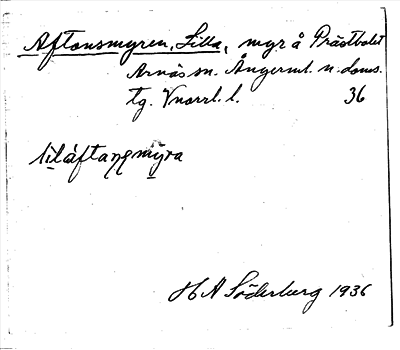 Aftonsmyren, Lilla, myr å Prästbolet
Arnäs sn. Ångerml. n. doms.
tg. Vnorrl. l. 36
lilàftaŋsmỳra
H A Söderberg 1936